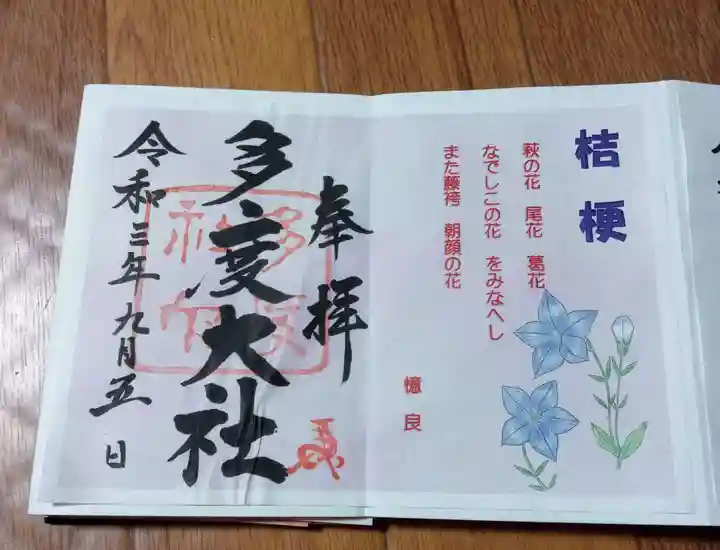 桔梗
萩の花 尾花 葛花
なでしこの花 をみなへし
また藤袴 朝顔の花
憶良
奉拝
多度大社
令和三年九月五日